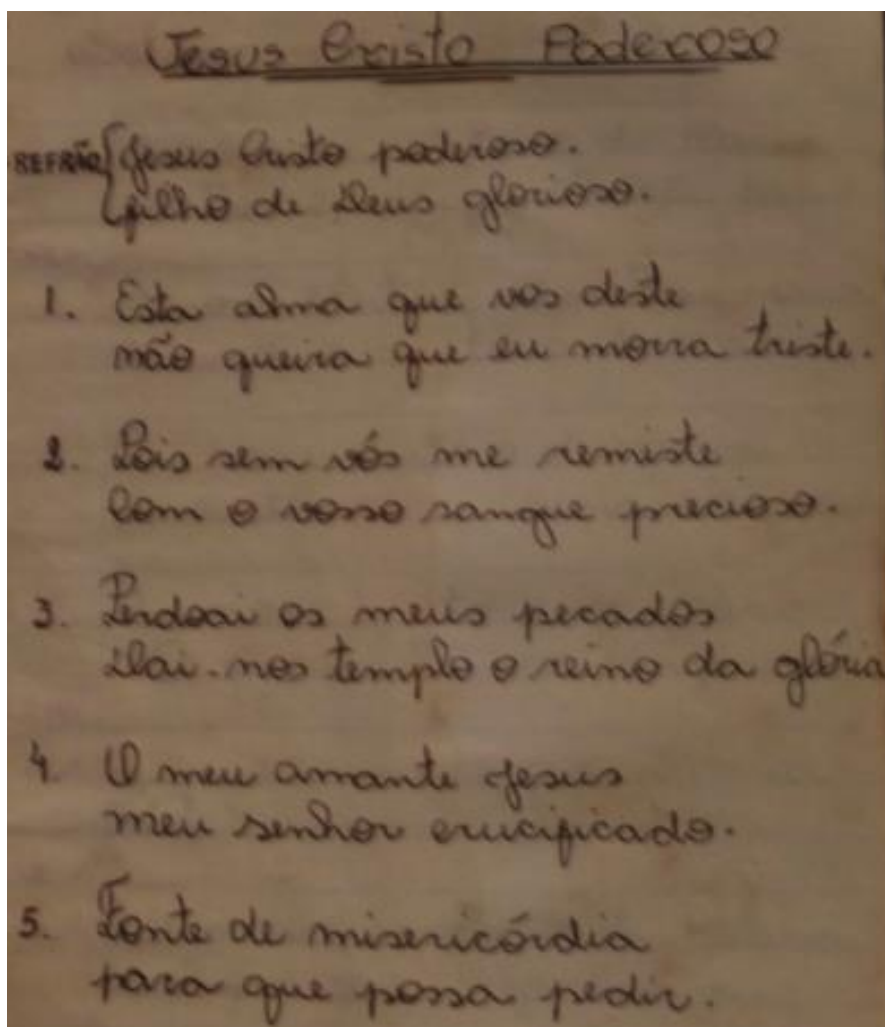 Jesus Cristo Poderoso
REFRÃO Jesus Cristo poderoso.
filho de Deus glorioso.
1. Esta alma que vos deste
não queira que eu morra triste.
2. Pois sem vós me remiste
Com o vosso sangue precioso.
3. Perdoai os meus pecados
Dai-nos templo o reino da glória
4. O meu amante Jesus
meu senhor crucificado.
5. Fonte de misericórdia
para que possa pedir.